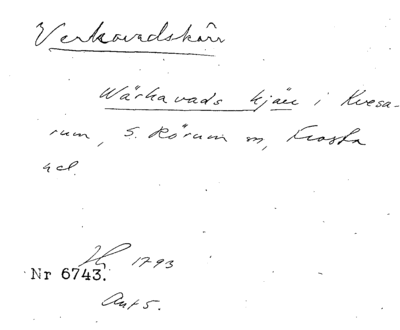 Verkavadskärr
Wärkavads kjärr i Kvesa-
rum, S. Rörum sn, Frosta
hd.
1793
Nr 6743.
Ant 5.